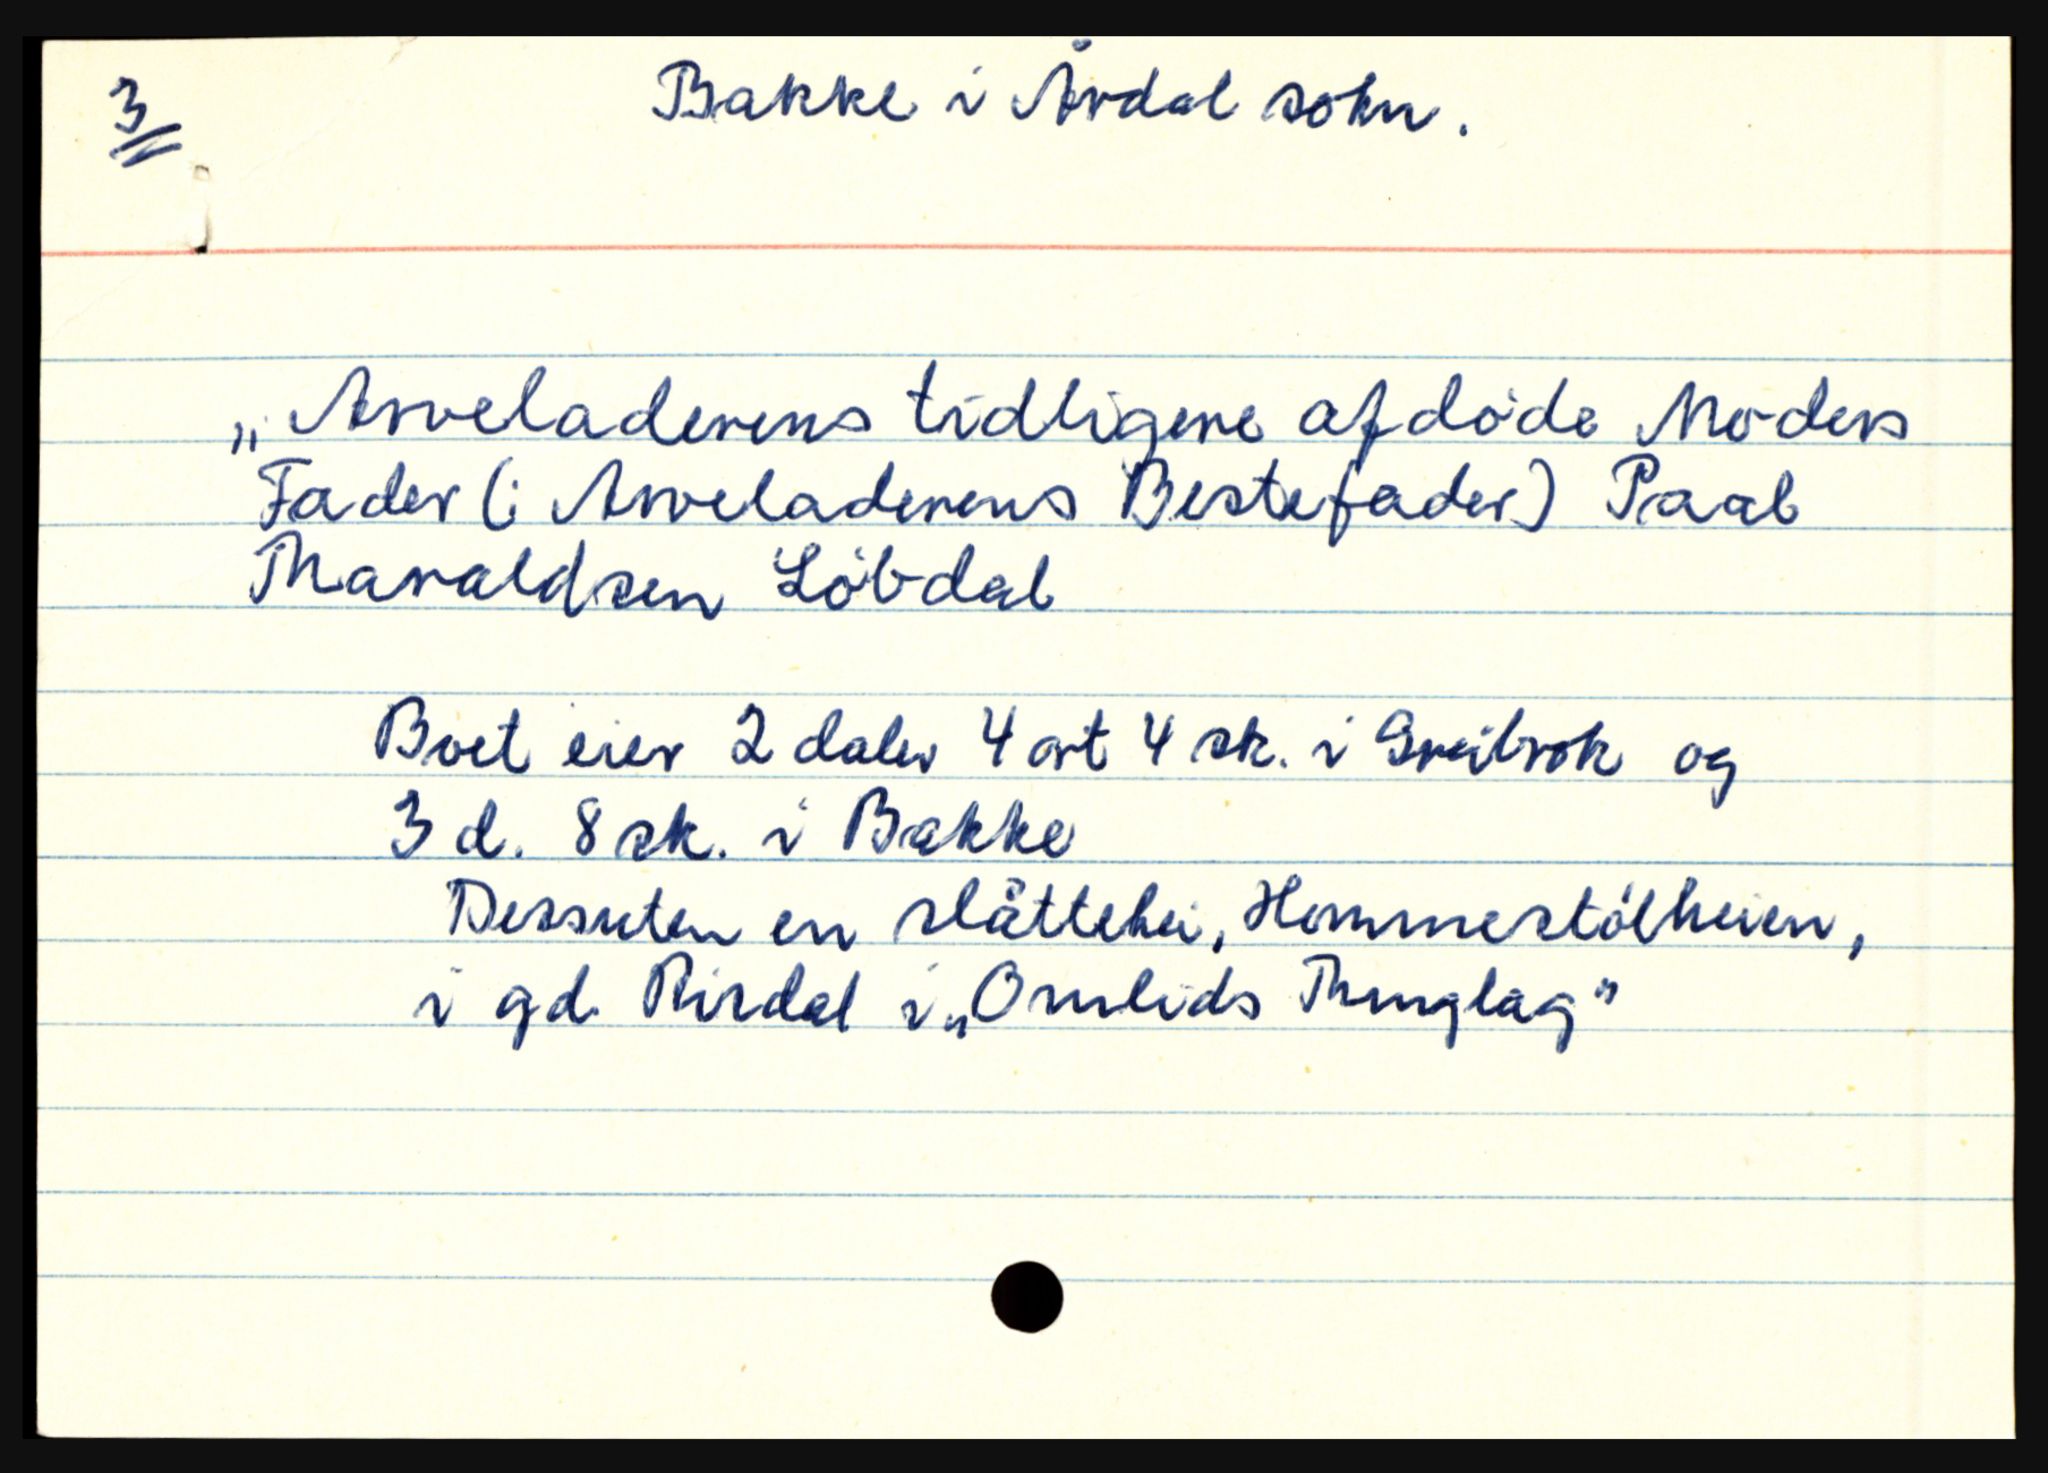 3
Bakke i Årdal sokn.
„Arveladerens tidligere afdøde Moders
Fader (: Arveladerens Bestefader) Paal
Tharaldsen Löbdal
Boet eier 2 daler 4 ort 4 sk. i Greibrok og
3 d. 8 sk. i Bakke
Dessuten en slåttehei, Hommestølheien,
i gd. Rirdal i „Omlids Thinglag"